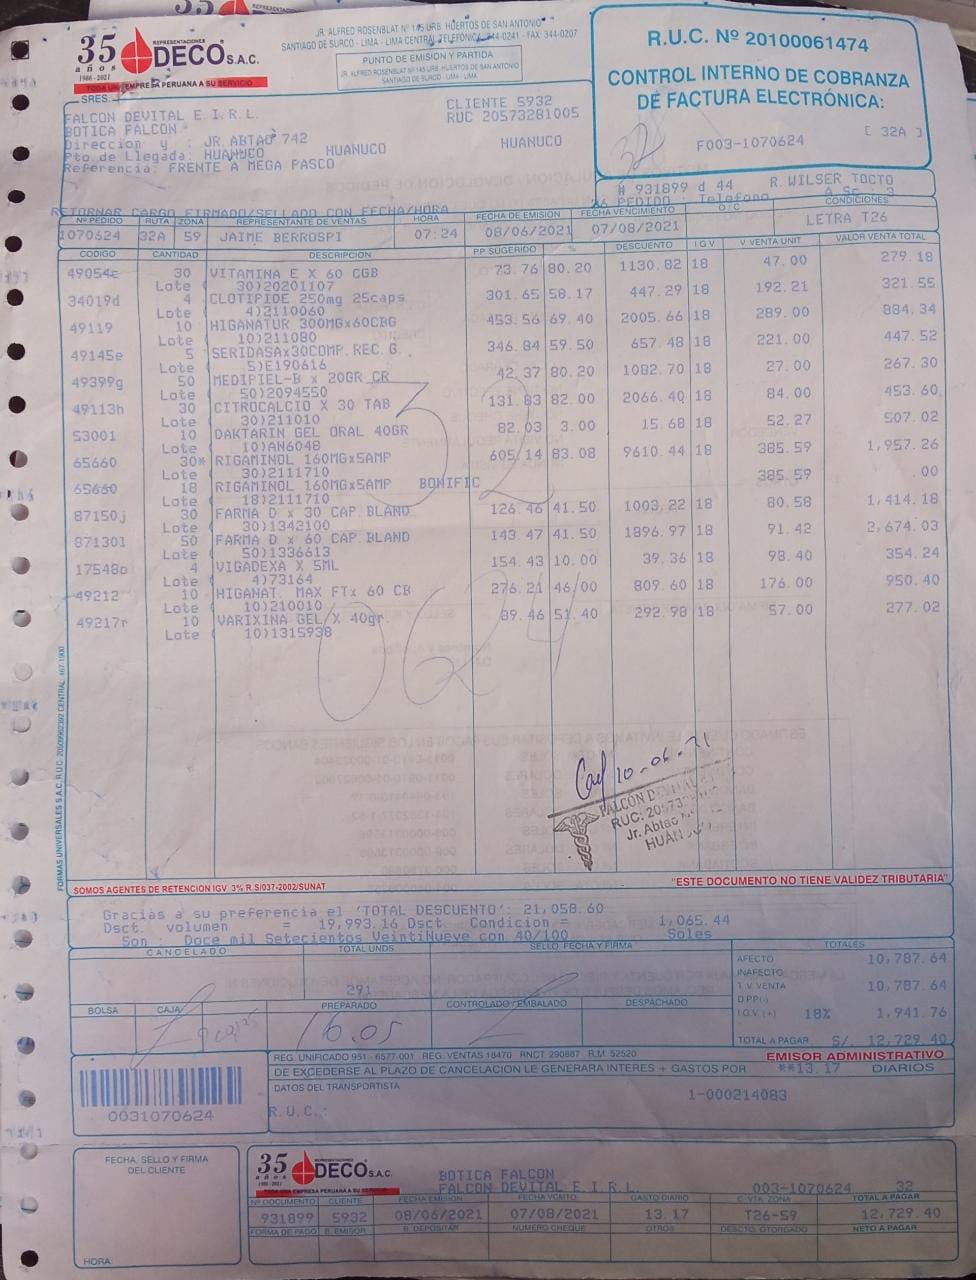 35 años
1986 - 2021
REPRESENTACIONES
DECO S.A.C.
TODA UNA EMPRESA PERUANA A SU SERVICIO
JR. ALFRED ROSENBLAT Nº 145 URB. HUERTOS DE SAN ANTONIO
SANTIAGO DE SURCO - LIMA - LIMA CENTRAL TELEFÓNICA: 344-0241 - FAX: 344-0207
PUNTO DE EMISIÓN Y PARTIDA
JR. ALFRED ROSENBLAT Nº 145 URB. HUERTOS DE SAN ANTONIO
SANTIAGO DE SURCO - LIMA - LIMA
R.U.C. Nº 20100061474
CONTROL INTERNO DE COBRANZA
DE FACTURA ELECTRÓNICA:
[ 32A ]
F003-1070624
32
SRES.
FALCON DEVITAL E.I.R.L.
BOTICA FALCON
Direccion y : JR. ABTAO 742
Pto. de Llegada: HUANUCO HUANUCO HUANUCO
Referencia: FRENTE A MEGA PASCO
CLIENTE 5932
RUC 20573281005
# 931899 d 44 R. WILSER TOCTO
26 PEDIDO : Telefono A Sc.: 3
RETORNAR CARGO FIRMADO/SELLADO CON FECHA/HORA
Nº PEDIDO RUTA ZONA REPRESENTANTE DE VENTAS HORA FECHA DE EMISIÓN FECHA VENCIMIENTO O/C CONDICIONES
1070624 32A 59 JAIME BERROSPI 07:24 08/06/2021 07/08/2021 LETRA T26
CODIGO CANTIDAD DESCRIPCION P.P SUGERIDO % DESCUENTO I.G.V V. VENTA UNIT VALOR VENTA TOTAL
49054c 30 VITAMINA E X 60 CGB 73.76 80.20 1130.82 18 47.00 279.18
Lote 30)20201107
34019d 4 CLOTIPIDE 250mg 25caps 301.65 58.17 447.29 18 192.21 321.55
Lote 4)2110060
49119 10 HIGANATUR 300MGx60CBG 453.56 69.40 2005.66 18 289.00 884.34
Lote 10)211080
49145e 5 SERIDASAx30COMP.REC.G. 346.84 59.50 657.48 18 221.00 447.52
Lote 5)E190616
49399g 50 MEDIPIEL-B x 20GR CR 42.37 80.20 1082.70 18 27.00 267.30
Lote 50)2094550
49113h 30 CITROCALCIO X 30 TAB 131.83 82.00 2066.40 18 84.00 453.60
Lote 30)211010
53001 10 DAKTARIN GEL ORAL 40GR 82.03 3.00 15.68 18 52.27 507.02
Lote 10)AN6048
65660 30* RIGAMINOL 160MGx5AMP 605.14 83.08 9610.44 18 385.59 1,957.26
Lote 30)2111710
65660 18 RIGAMINOL 160MGx5AMP BONIFIC 385.59 00
Lote 18)2111710
87150j 30 FARMA D x 30 CAP.BLAND 126.46 41.50 1003.22 18 80.58 1,414.18
Lote 30)1342100
871301 50 FARMA D x 60 CAP.BLAND 143.47 41.50 1896.97 18 91.42 2,674.03
Lote 50)1336613
17548o 4 VIGADEXA X 5ML 154.43 10.00 39.36 18 98.40 354.24
Lote 4)73164
49212 10 HIGANAT. MAX FTx 60 CB 276.21 46.00 809.60 18 176.00 950.40
Lote 10)210010
49217r 10 VARIXINA GEL X 40gr. 89.46 51.40 292.98 18 57.00 277.02
Lote 10)1315938
32
0624
10-06-21
FALCON
RUC:
Jr. Abtao
HUÁNUCO
FORMAS UNIVERSALES S.A.C.
SOMOS AGENTES DE RETENCION IGV. 3% R.S/037-2002/SUNAT
"ESTE DOCUMENTO NO TIENE VALIDEZ TRIBUTARIA"
Gracias a su preferencia el 'TOTAL DESCUENTO': 21,058.60
Dsct. volumen = 19,993.16 Dsct. Condicion = 1,065.44
Son : Doce mil Setecientos VeintiNueve con 40/100 Soles
CANCELADO TOTAL UNDS SELLO, FECHA Y FIRMA TOTALES
291
AFECTO 10,787.64
INAFECTO
T.V. VENTA 10,787.64
D.PP.(-)
I.G.V. (+) 18% 1,941.76
TOTAL A PAGAR S/. 12,729.40
BOLSA CAJA PREPARADO CONTROLADO / EMBALADO DESPACHADO
16.05
REG. UNIFICADO 951 - 6577-001 REG. VENTAS 18470 RNCT 290887 R.M. 52520
EMISOR ADMINISTRATIVO
DE EXCEDERSE AL PLAZO DE CANCELACION LE GENERARA INTERES + GASTOS POR **13.17 DIARIOS
DATOS DEL TRANSPORTISTA
1-000214083
R.U.C.:
0031070624
FECHA, SELLO Y FIRMA
DEL CLIENTE
HORA:
35 años
1986 - 2021
REPRESENTACIONES
DECO S.A.C.
TODA UNA EMPRESA PERUANA A SU SERVICIO
BOTICA FALCON
FALCON DEVITAL E.I.R.L. 003-1070624 32
Nº DOCUMENTO CLIENTE FECHA EMISION FECHA VCMTO GASTO DIARIO C. VTA. ZONA TOTAL A PAGAR
931899 5932 08/06/2021 07/08/2021 13.17 T26-59 12,729.40
FORMA DE PAGO B. EMISOR B. DEPOSITAR NUMERO CHEQUE OTROS DESCTO. OTORGADO NETO A PAGAR